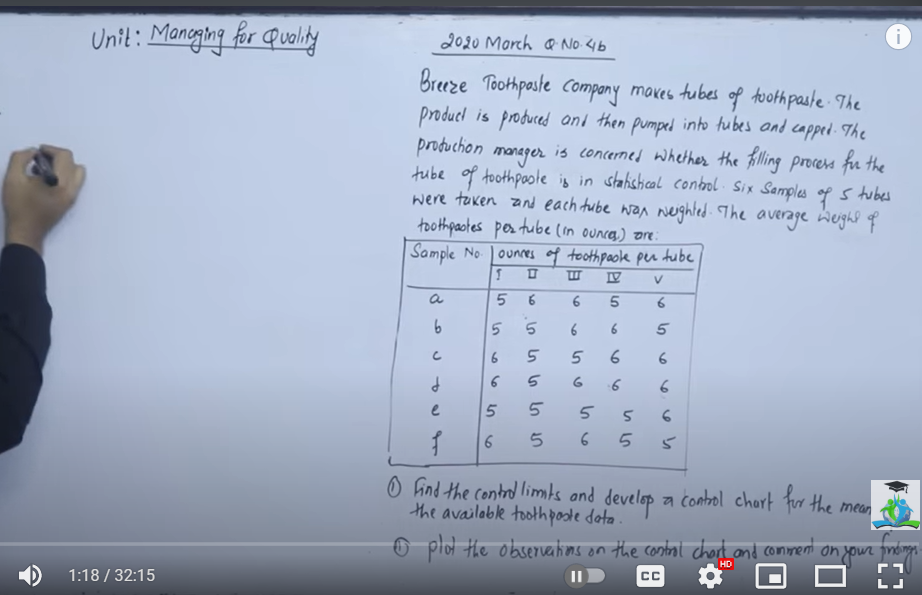 Unit: Managing for Quality
2020 March Q.No.4b
Breeze Toothpaste Company makes tubes of toothpaste. The
product is produced and then pumped into tubes and capped. The
production manager is concerned whether the filling process for the
tube of toothpaste is in statistical control. Six Samples of 5 tubes
were taken and each tube was weighted. The average weight of
toothpastes per tube (in ounces) are:
Sample No. ounces of toothpaste per tube
I II III IV V
a 5 6 6 5 6
b 5 5 6 6 5
c 6 5 5 6 6
d 6 5 6 6 6
e 5 5 5 5 6
f 6 5 6 5 5
① Find the control limits and develop a control chart for the mean
the available toothpaste data.
plot the observations on the control chart and comment on your findings.
1:18 / 32:15
CC
HD